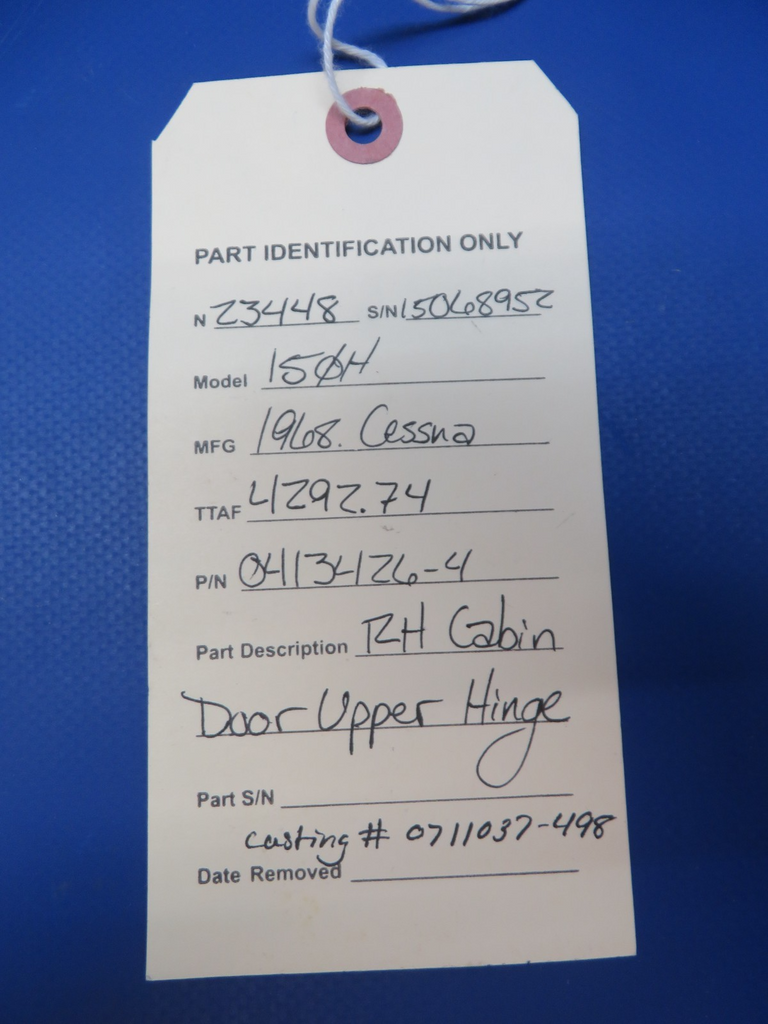 PART IDENTIFICATION ONLY
N 23448 S/N 15068952
Model 150H
MFG 1968. Cessna
TTAF 4292.74
P/N 0413426-4
Part Description RH Cabin
Door Upper Hinge
Part S/N
Casting # 0711037-498
Date Removed